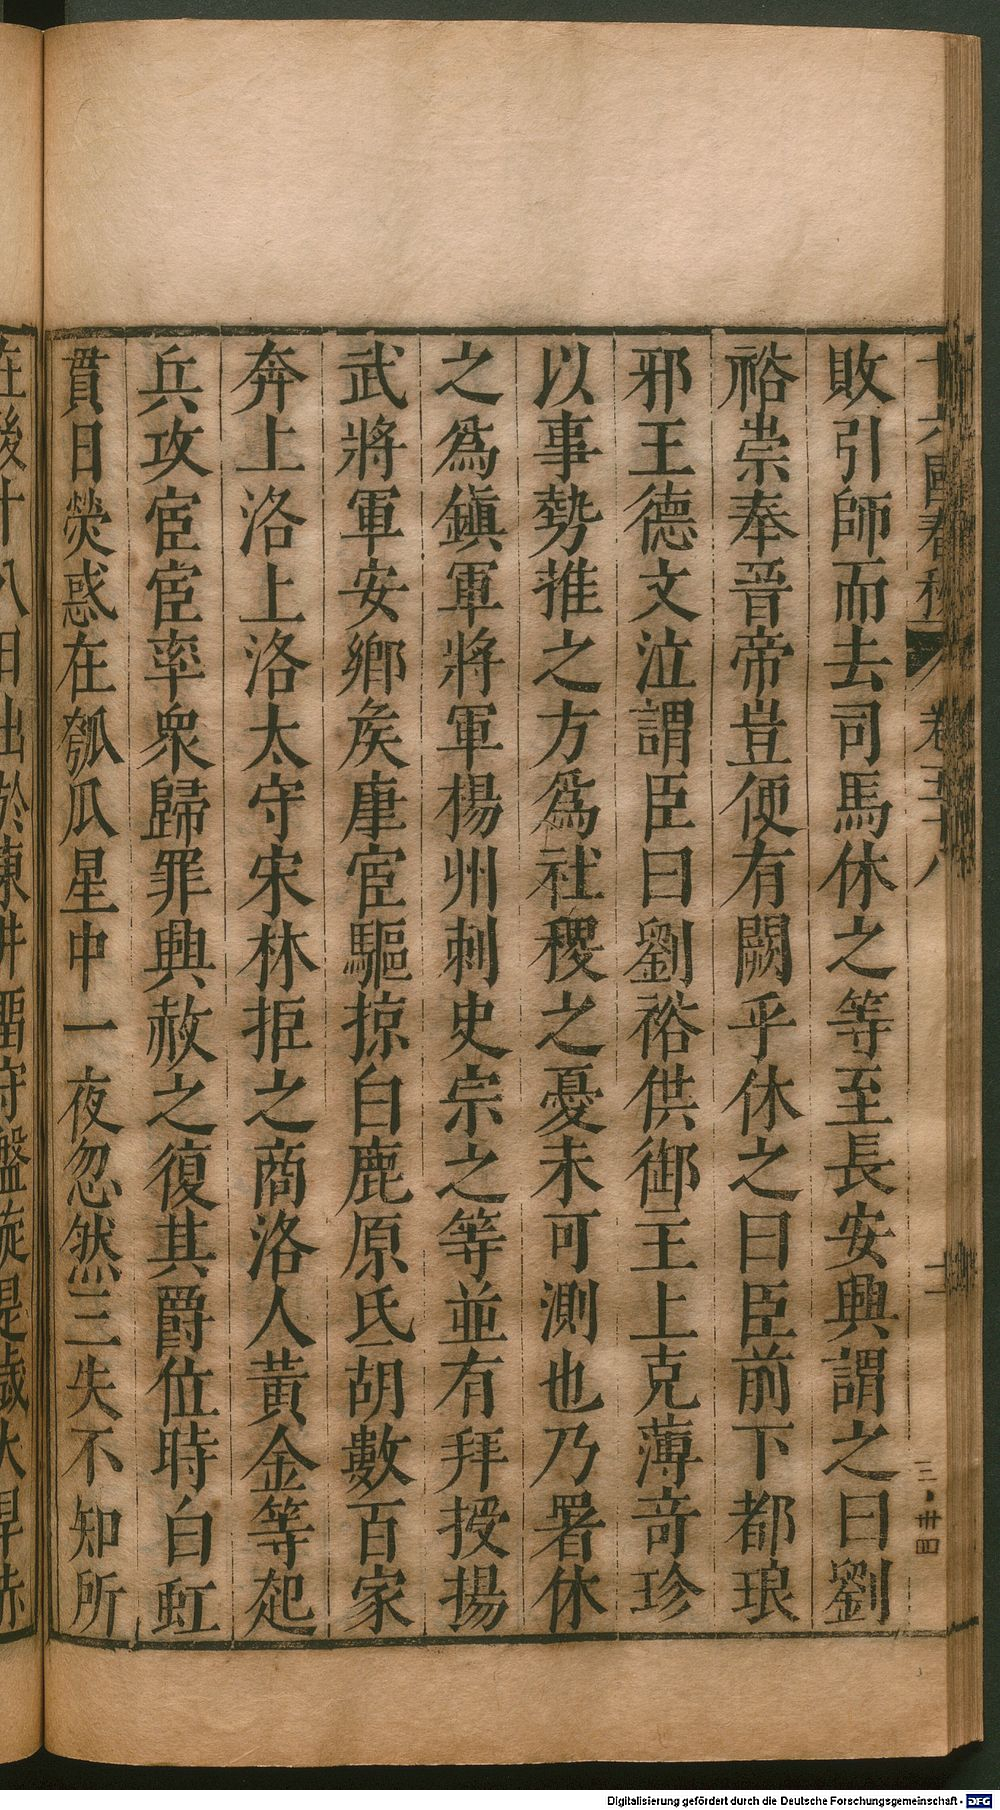 敗引師而去司馬休之等至長安興謂之曰劉
裕崇奉晉帝豈便有闕乎休之曰臣前下都琅
邪王德文泣謂臣曰劉裕供御王上克薄竒珍
以事勢推之方為社稷之憂未可測也乃署休
之為鎮軍將軍楊州刺史宗之等並有拜授揚
武將軍安鄉矦康宦驅掠白鹿原氐胡數百家
奔上洛上洛太守宋林拒之商洛人黃金等起
兵攻宦宦率衆歸罪興赦之復其爵位時白虹
貫日熒惑在瓠瓜星中一夜忽然三失不知所
Digitalisierung gefördert durch die Deutsche Forschungsgemeinschaft - DFG